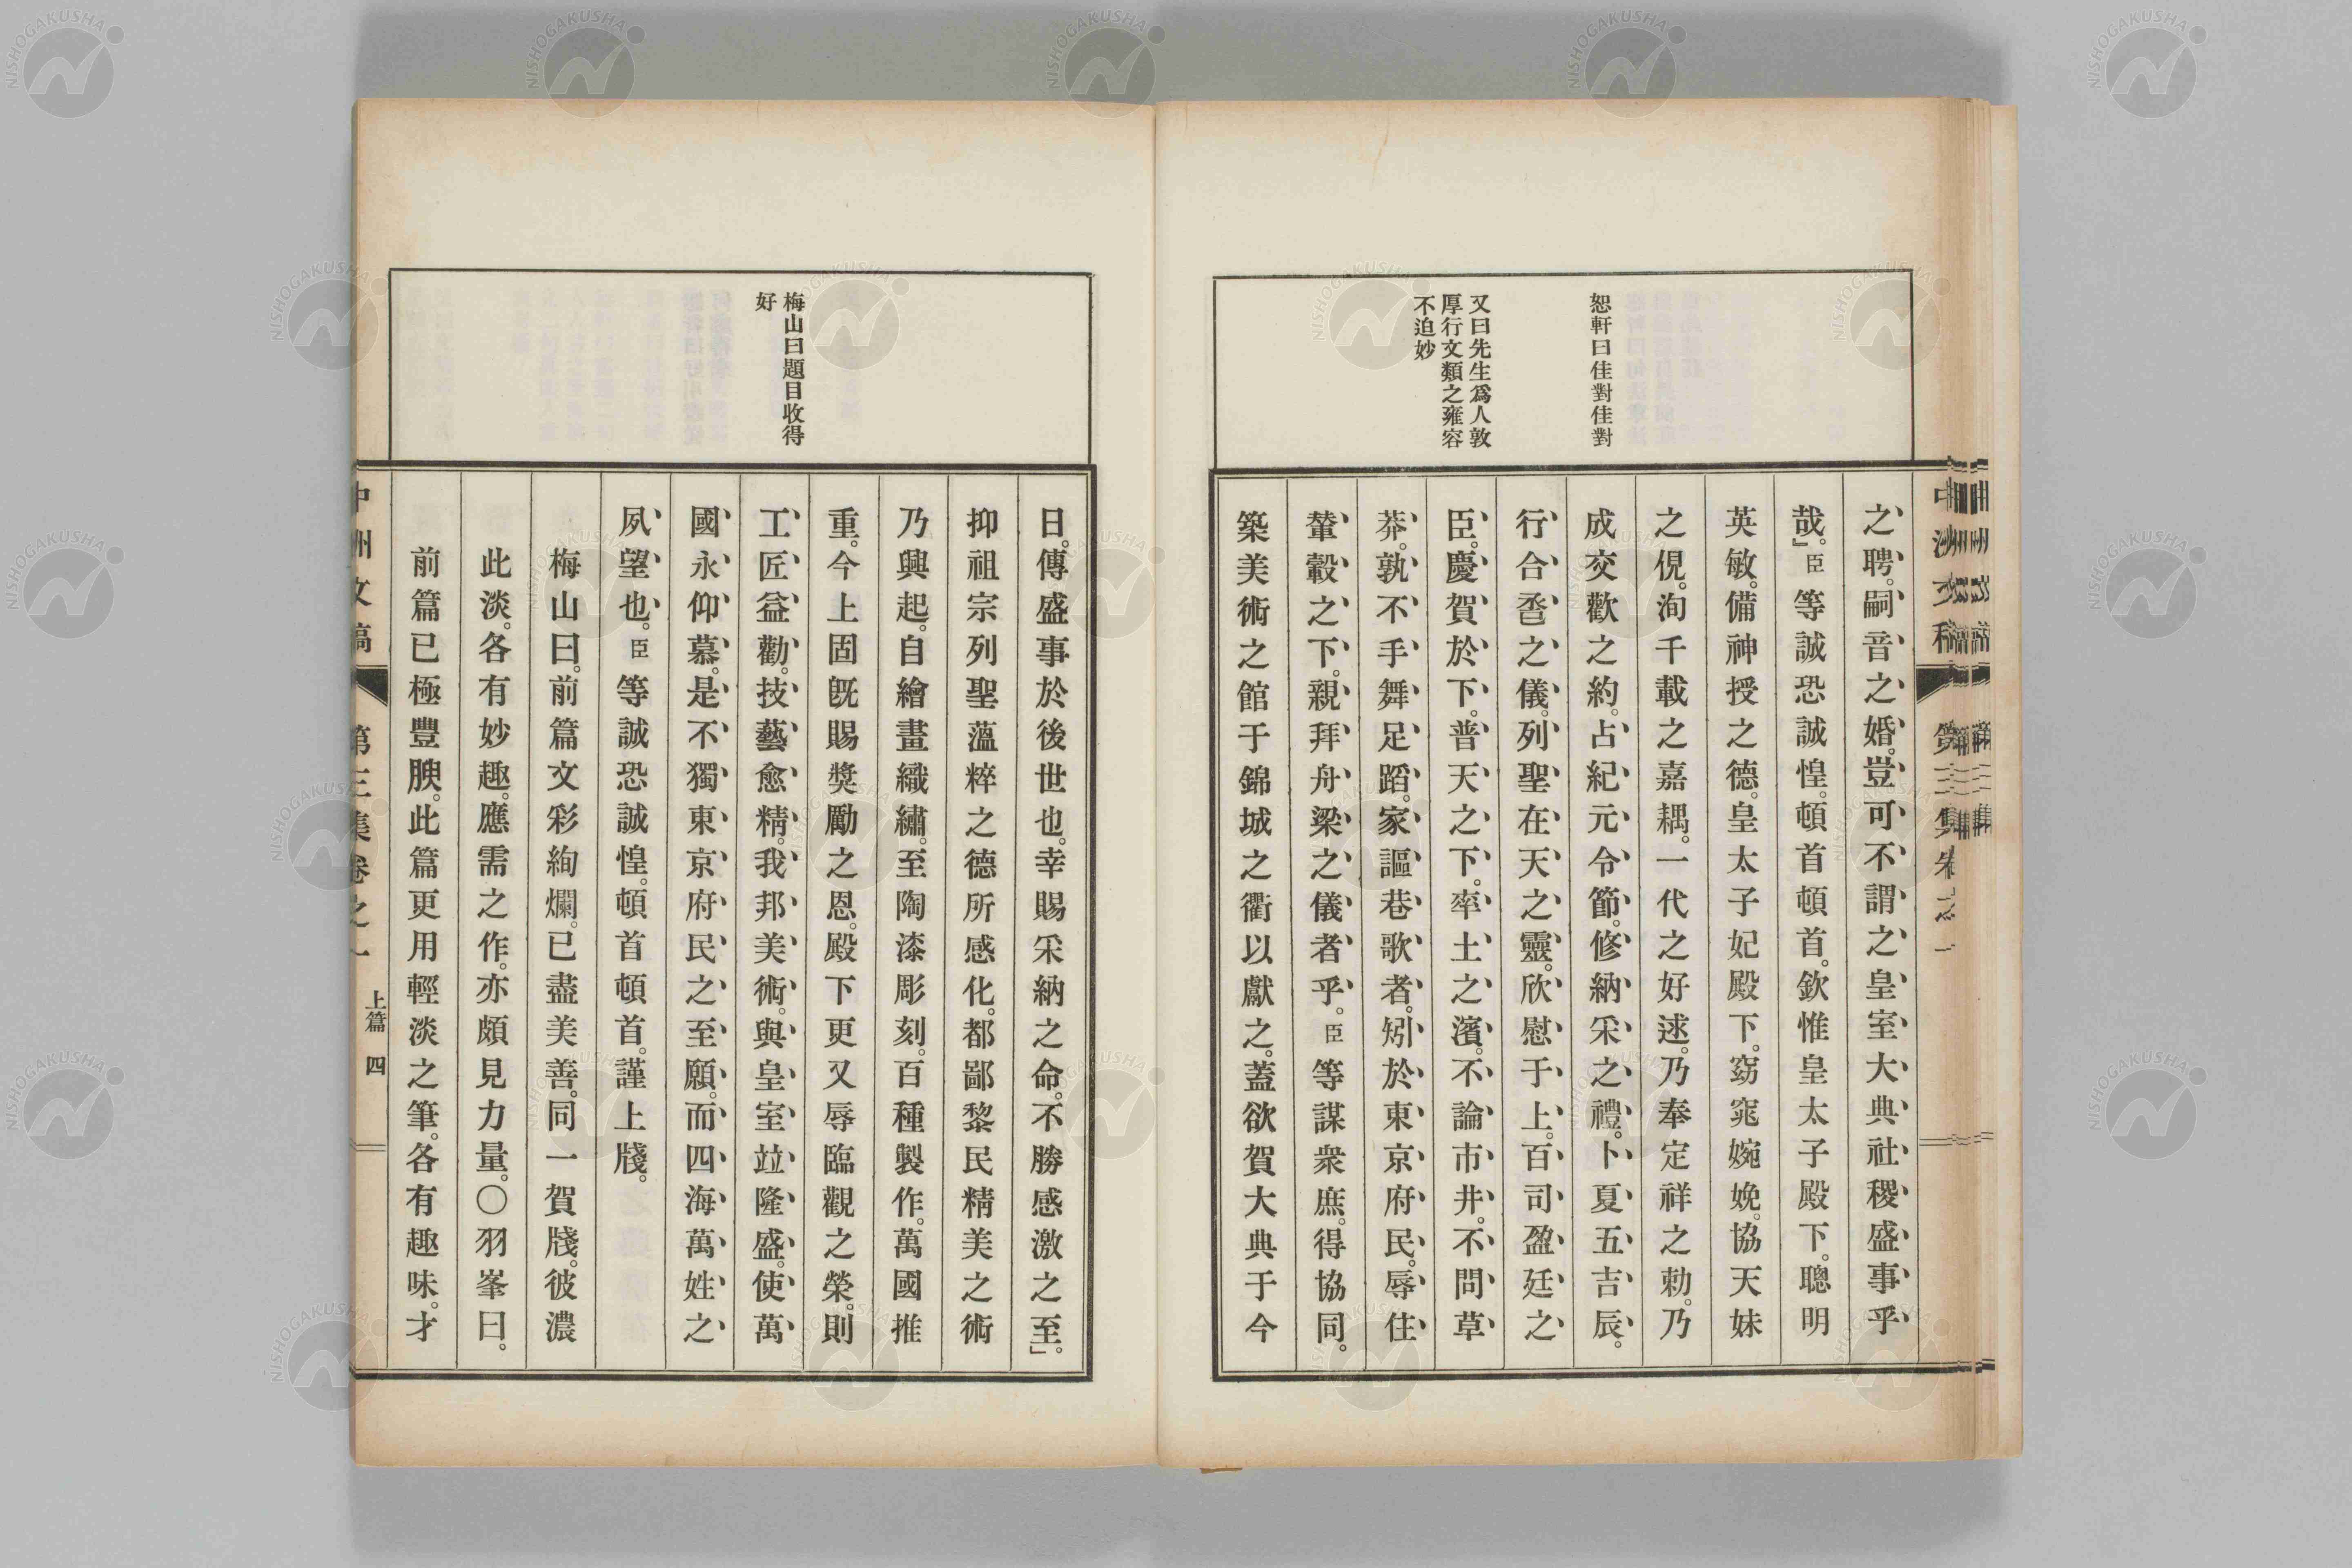 恕軒曰佳對佳對
又曰先生爲人敦
厚行文類之雍容
不迫妙
之聘。嗣音之婚。豈可不謂之皇室大典社稷盛事乎
哉。」臣等誠恐誠惶。頓首頓首。欽惟皇太子殿下。聰明
英敏。備神授之德。皇太子妃殿下。窈窕婉娩。協天妹
之俔。洵千載之嘉耦。一代之好逑。乃奉定祥之勅。乃
成交歡之約。占紀元令節。修納采之禮。卜夏五吉辰。
行合巹之儀。列聖在天之靈。欣慰于上。百司盈廷之
臣。慶賀於下。普天之下。率土之濱。不論市井。不問草
莽。孰不手舞足蹈。家謳巷歌者。矧於東京府民。辱住
輦轂之下。親拜舟梁之儀者乎。臣等謀衆庶。得協同。
築美術之館于錦城之衢以獻之。蓋欲賀大典于今
梅山曰題目收得
好
日。傳盛事於後世也。幸賜采納之命。不勝感激之至。」
抑祖宗列聖薀粹之德所感化。都鄙黎民精美之術
乃興起。自繪畫織繡。至陶漆彫刻。百種製作。萬國推
重。今上固既賜獎勵之恩。殿下更又辱臨觀之榮。則
工匠益勸。技藝愈精。我邦美術。與皇室竝隆盛。使萬
國永仰慕。是不獨東京府民之至願。而四海萬姓之
夙望也。臣等誠恐誠惶。頓首頓首。謹上牋。
梅山曰。前篇文彩絢爛。已盡美善。同一賀牋。彼濃
此淡。各有妙趣。應需之作。亦頗見力量。〇羽峯曰。
前篇已極豐腴。此篇更用輕淡之筆。各有趣味。才
中洲文稿 第三集卷之一 上篇 四